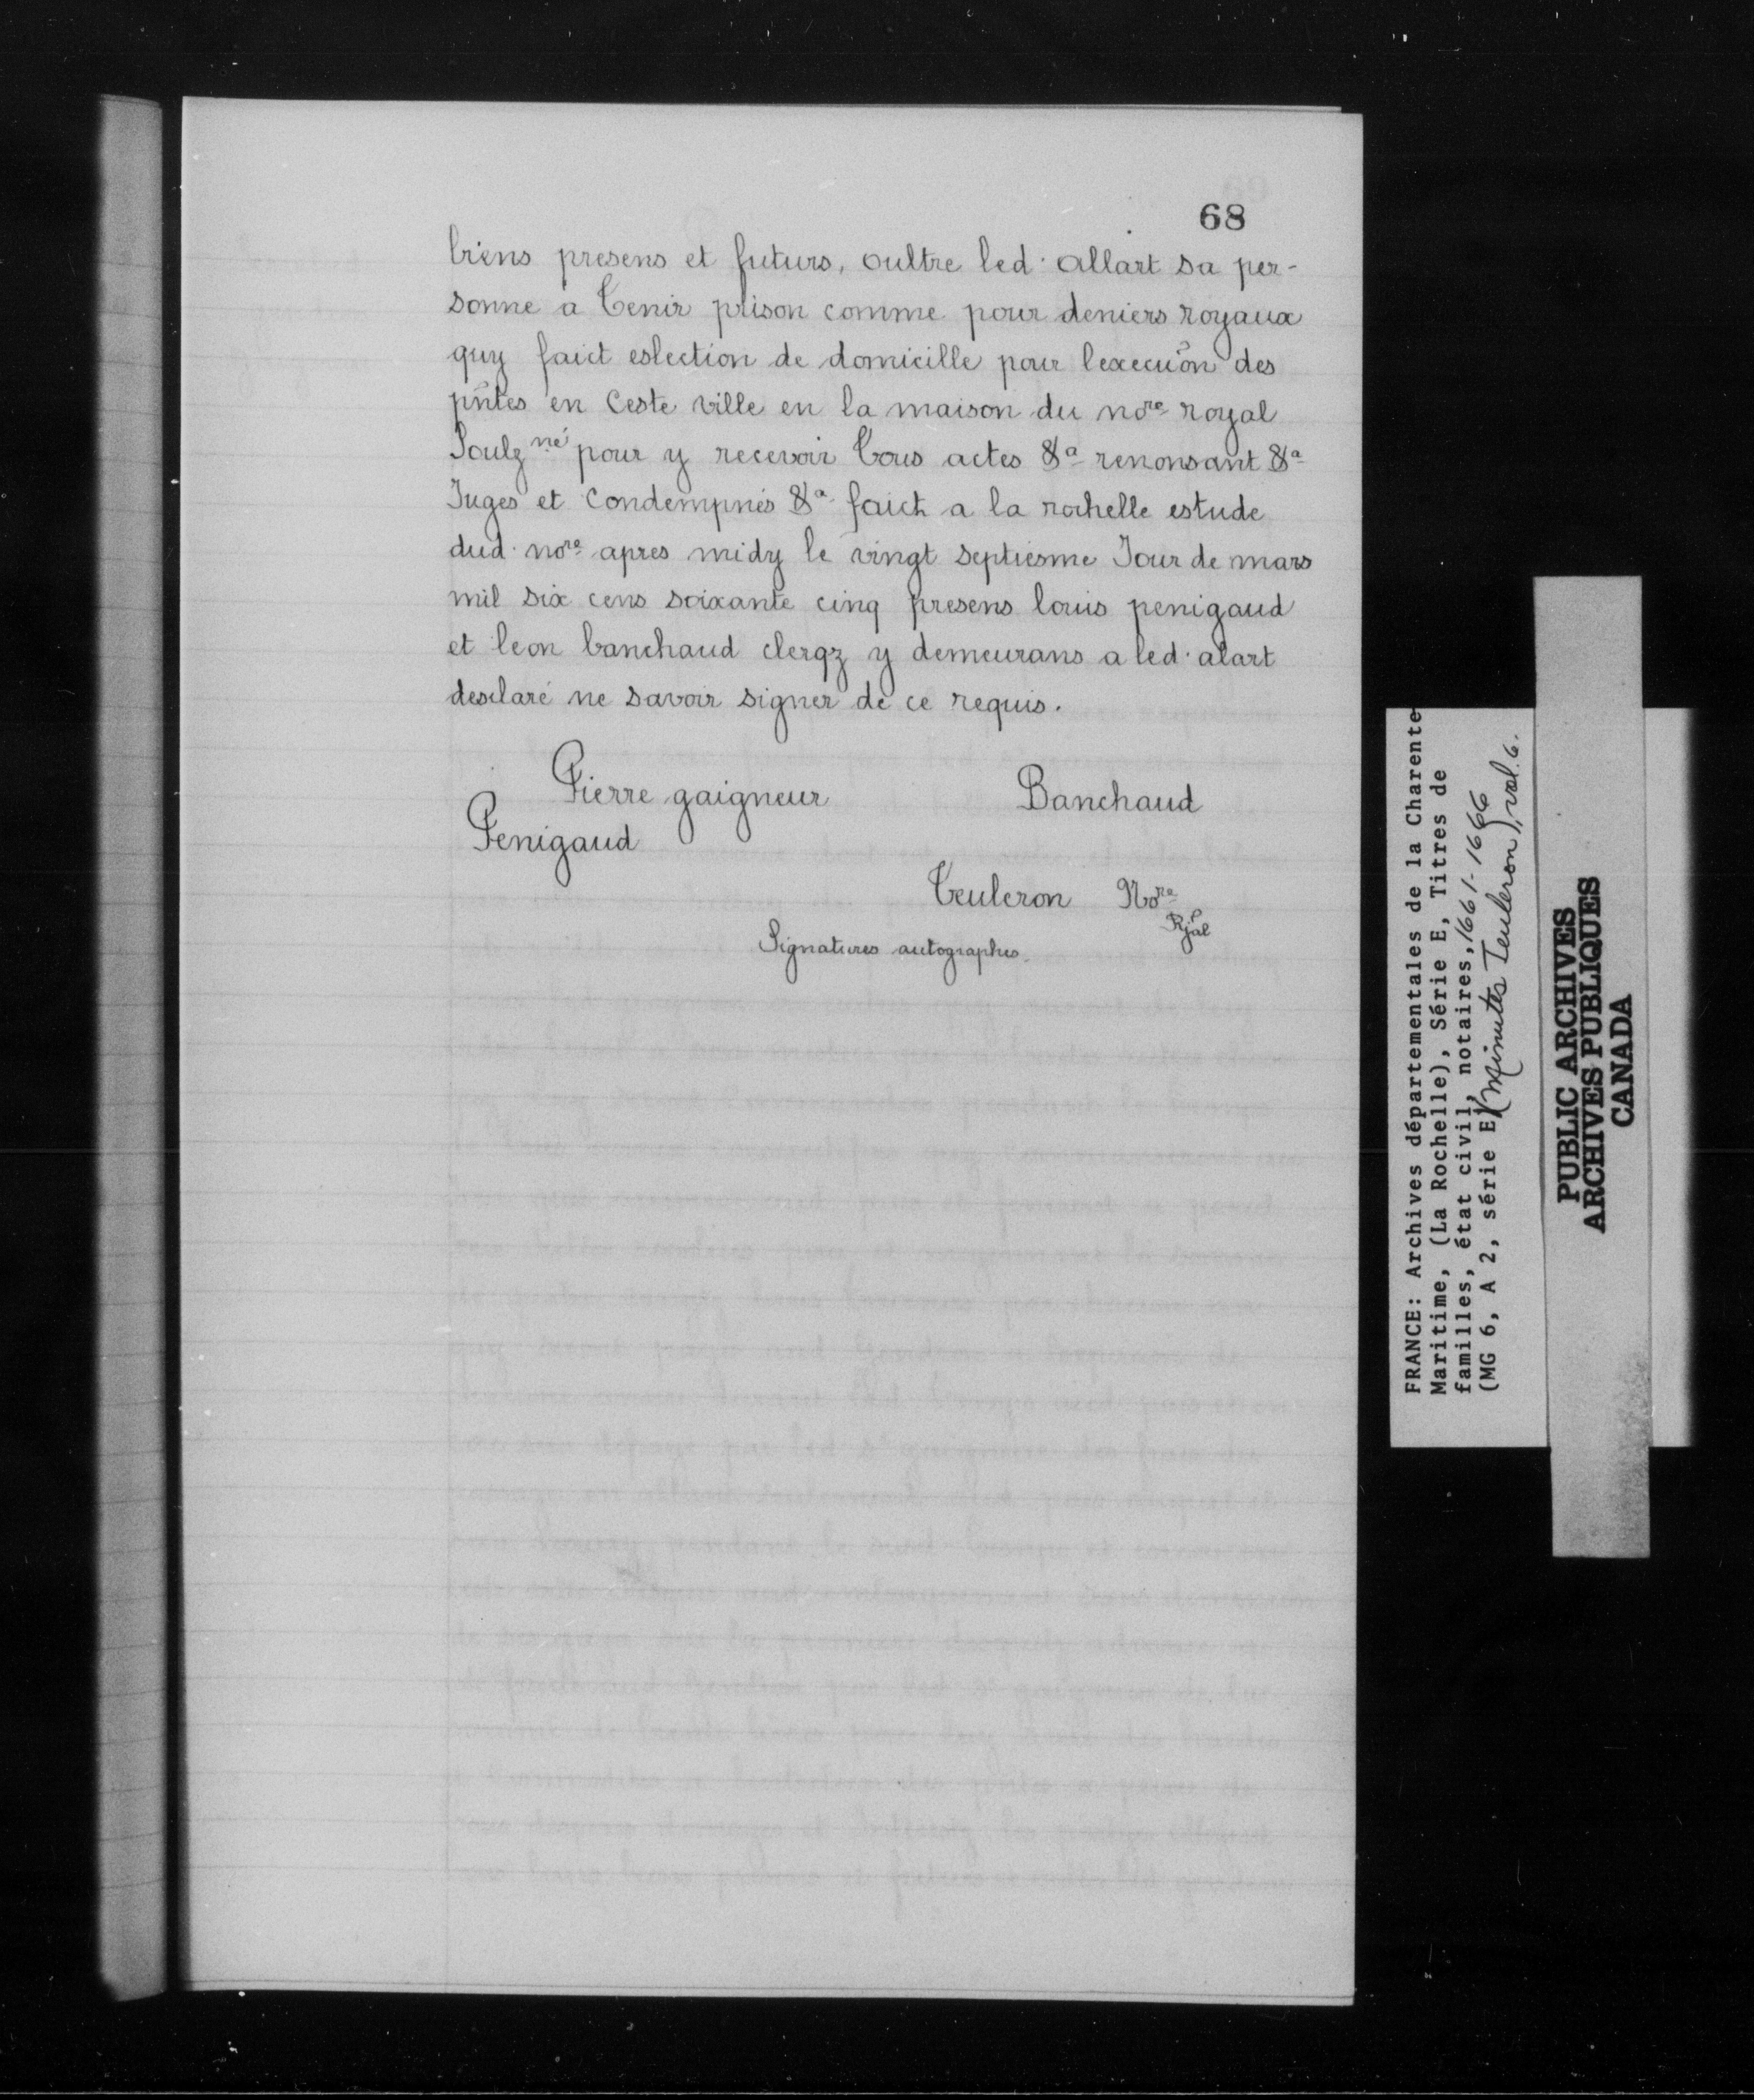 68
biens presens et futurs, oultre led. Allart sa per-
sonne a Tenir prison comme pour deniers royaux
quy faict eslection de domicille pour lexecuõn des
pñtes en Ceste ville en la maison du nore royal
Soulzné pour y recevoir Tous actes &a renonsant &a
Juges et Condempnés &a faict a la rochelle estude
dud. nore apres midy le vingt septiesme Jour de mars
mil six cens soixante cinq presens louis penigaud
et leon banchaud clergz y demeurans a led. alart
desclaré ne savoir signer de ce requis.
Pierre gaigneur Banchaud
Penigaud
Teuleron Nore
Rjal
Signatures autographes.
FRANCE: Archives départementales de la Charente-
Maritime, (La Rochelle), Série E, Titres de
familles, état civil, notaires, 1661-1666
(MG 6, A 2, série E) (Minutes Teuleron), vol. 6.
PUBLIC ARCHIVES
ARCHIVES PUBLIQUES
CANADA